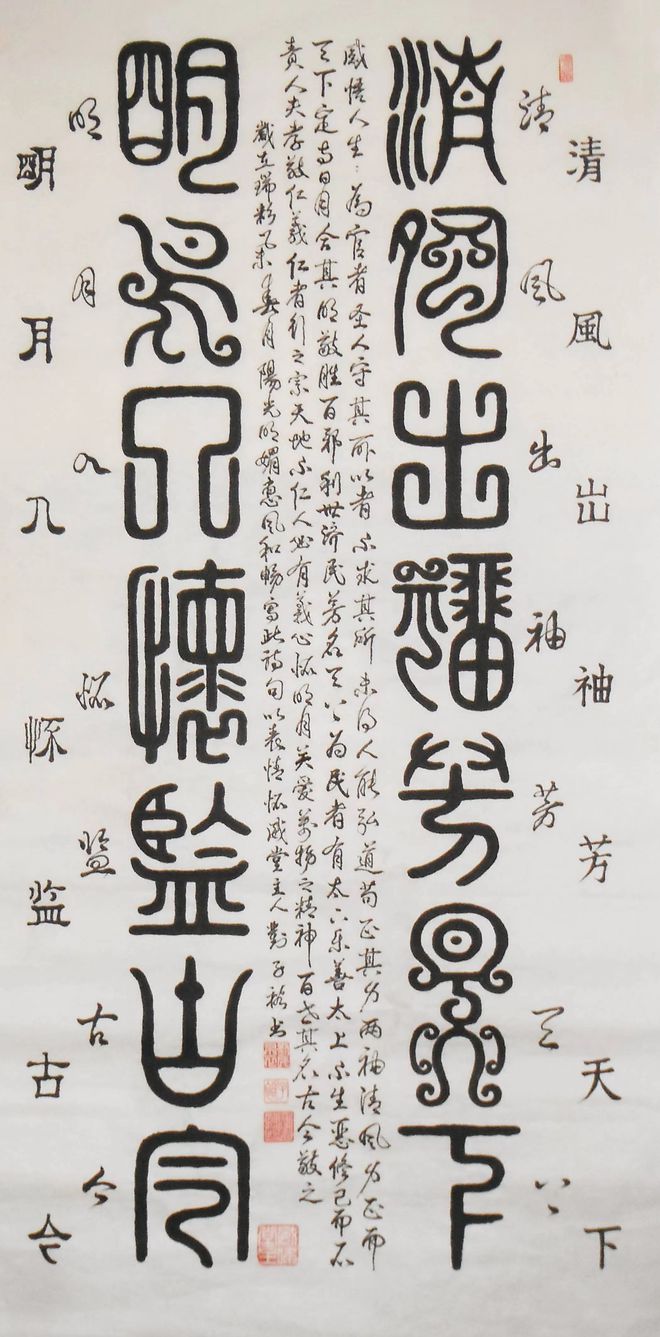 清風岀袖芳天下
清风出袖芳天下
清風出袖芳天下
感悟人生：為官者圣人守其所以者不求其所未得人能弘道苟正其身两袖清风身正而
天下定与日月合其明敬胜百邪利世济民芳名天下为民者有太上乐善太上不生恶修己而不
责人夫孝敬仁義仁者行之宗天地不仁人必有義心怀明月关爱萬物之精神百世其名古今敬之
歲在瑞彩春月陽光明媚惠风和畅写此诗句以表情怀堂主人子书
明月入懷監古今
明月入怀监古今
明月入怀监古今